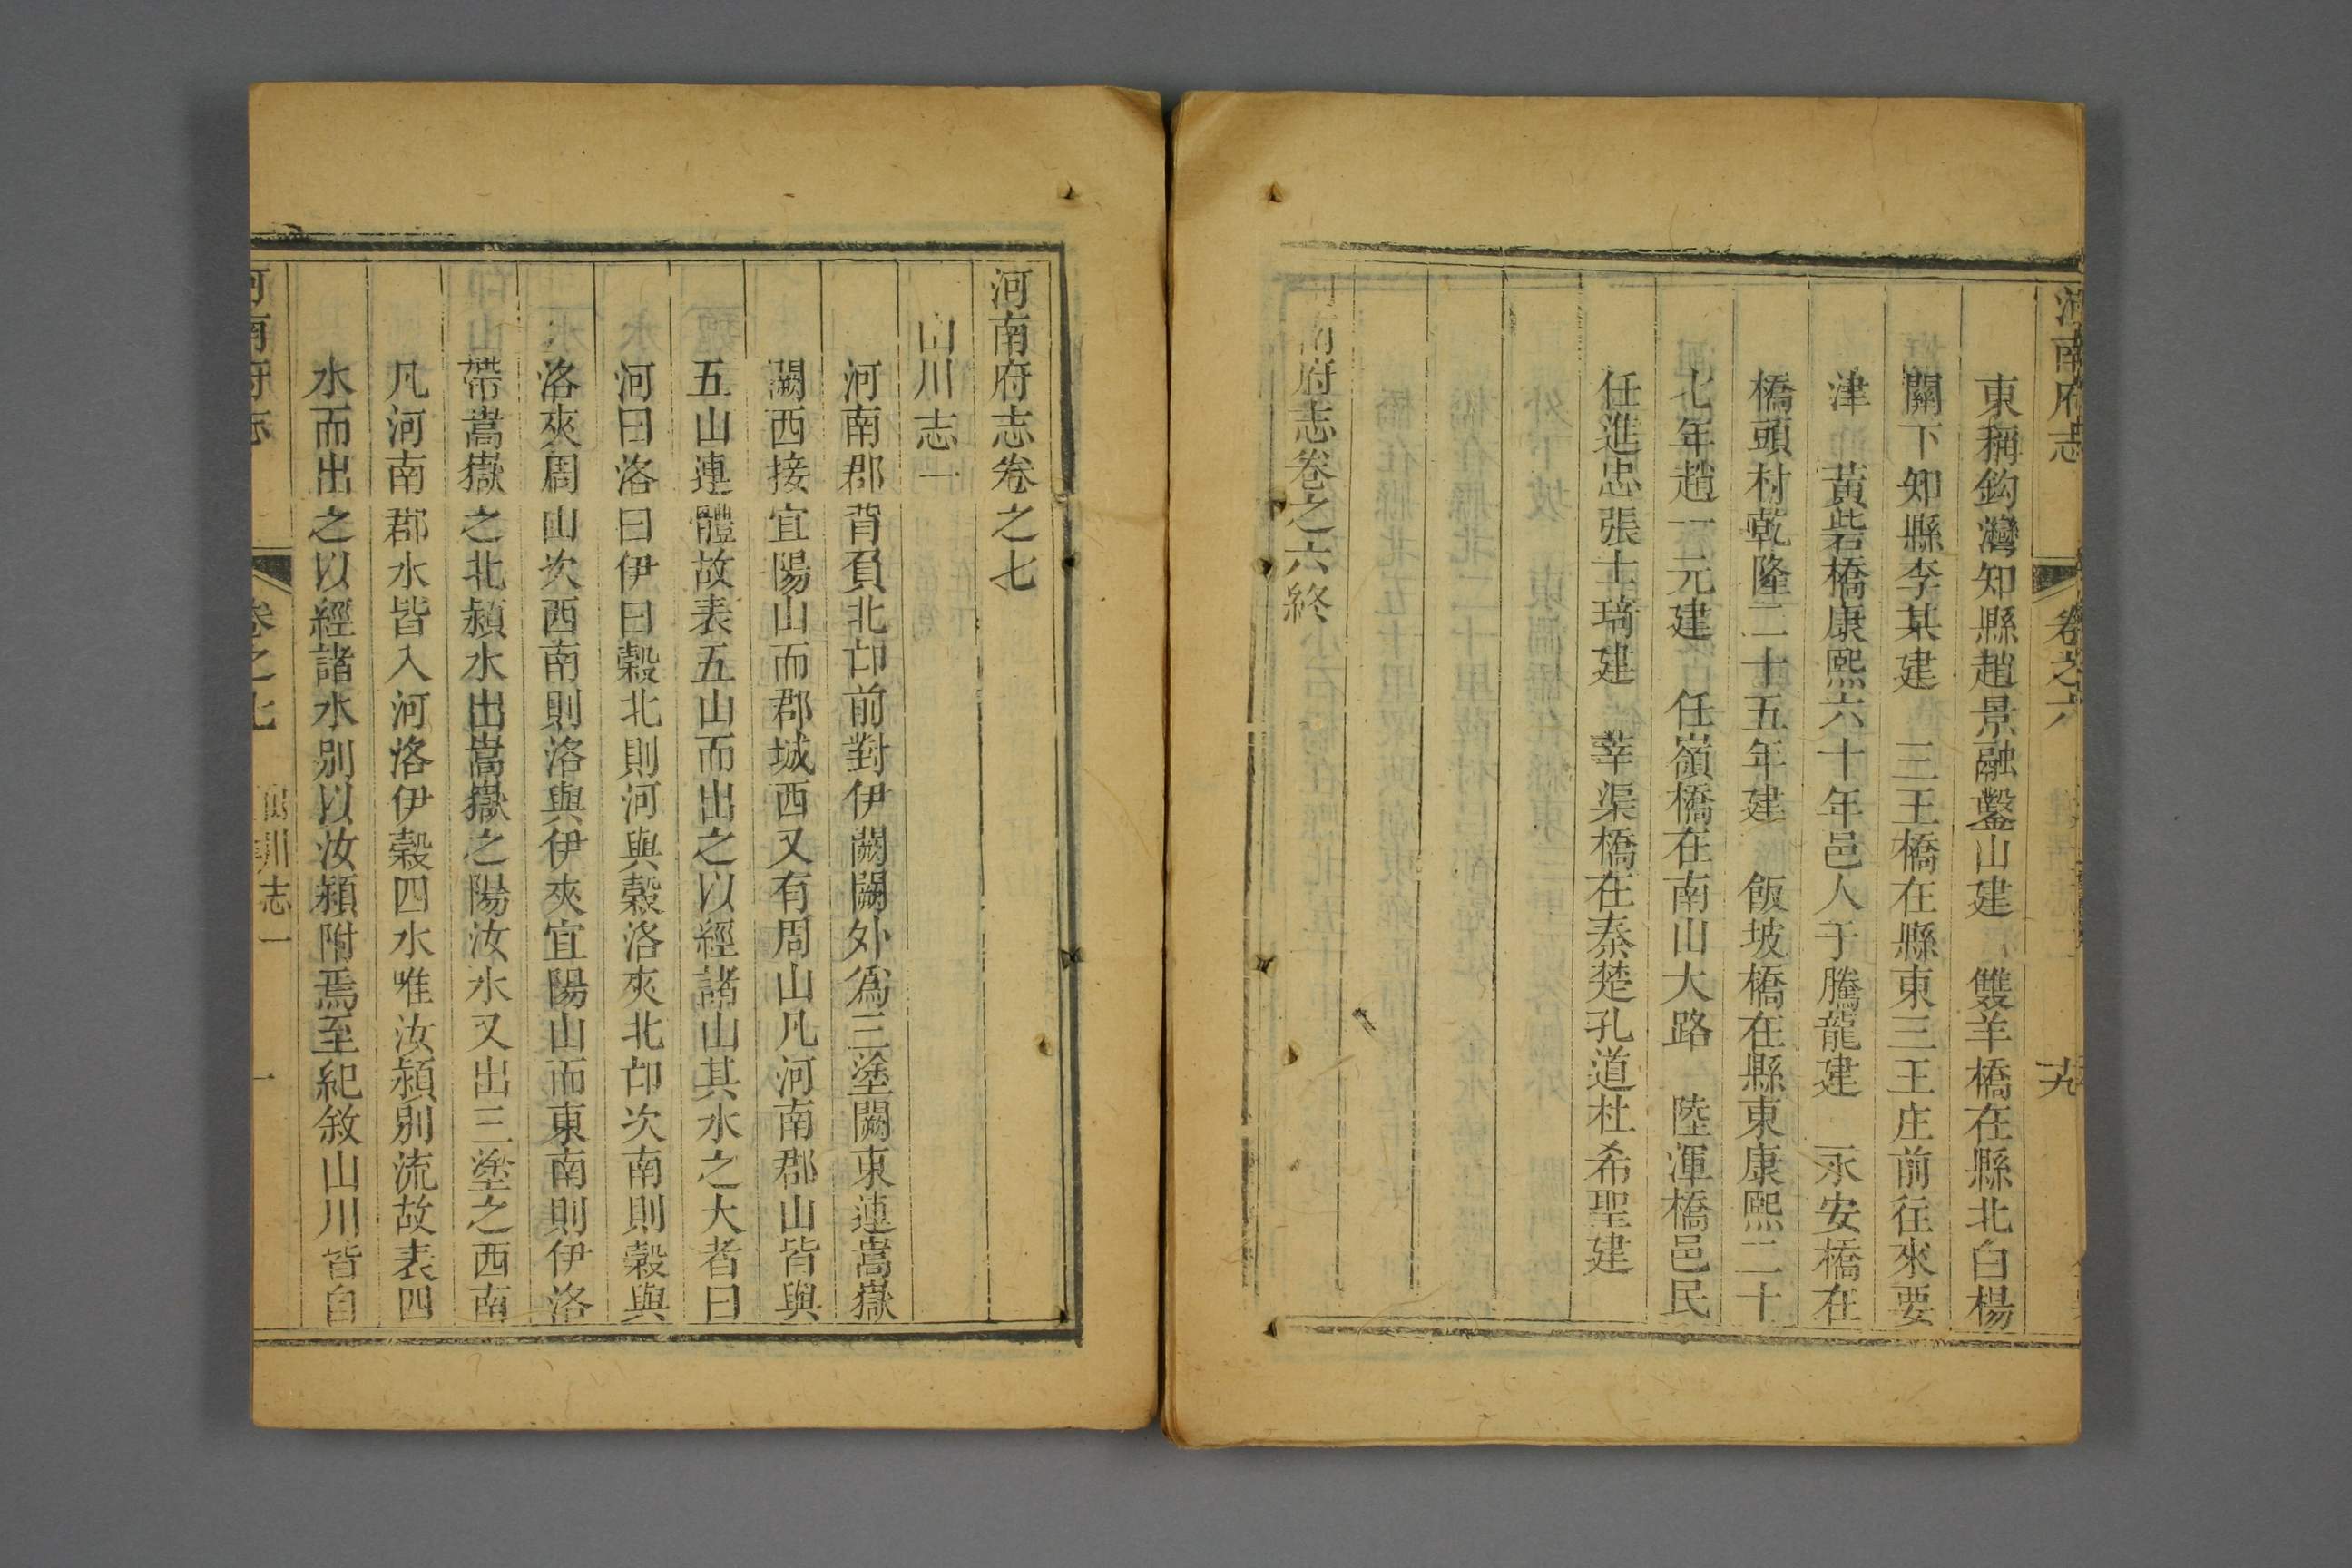 河南府志 卷之六 十九
東稱鈎灣知縣趙景融鑿山建 雙羊橋在縣北白楊
關下知縣李某建 三王橋在縣東三王庄前往來要
津 黃砦橋康熙六十年邑人于騰龍建 永安橋在
橋頭村乾隆二十五年建 飯坡橋在縣東康熙二十
七年趙一元建 任嶺橋在南山大路 陸渾橋邑民
任進忠張士琦建 莘渠橋在秦楚孔道杜希聖建
河南府志卷之六終
河南府志卷之七
山川志一
河南郡背負北邙前對伊闕闕外爲三塗闕東連嵩嶽
闕西接宜陽山而郡城西又有周山凡河南郡山皆與
五山連體故表五山而出之以經諸山其水之大者曰
河曰洛曰伊曰穀北則河與穀洛夾北邙次南則穀與
洛夾周山次西南則洛與伊夾宜陽山而東南則伊洛
帶嵩嶽之北潁水出嵩嶽之陽汝水又出三塗之西南
凡河南郡水皆入河洛伊穀四水唯汝潁別流故表四
水而出之以經諸水別以汝潁附焉至紀敘山川皆自
河南府志 卷之七 山川志一 一